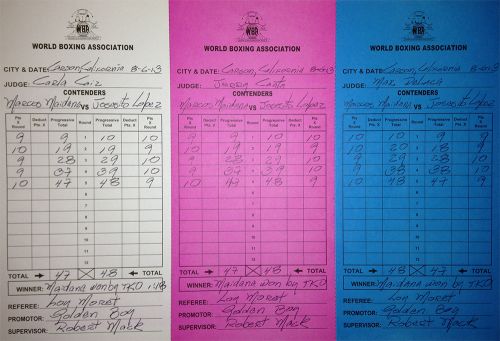 WBA
WORLD BOXING ASSOCIATION
CITY & DATE: Carson, California 8-6-13
JUDGE: Carla Caiz
CONTENDERS
Marcos Maidana VS Josesito Lopez
Pts X Round Deduct Pts. X Progressive Total Round Progressive Total Deduct Pts. X Pts X Round
9 9 1 10 10
10 19 2 19 9
9 28 3 29 10
9 37 4 39 10
10 47 5 48 9
6
7
8
9
10
11
12
TOTAL 47 48 TOTAL
WINNER: Maidana won by TKO
REFEREE: Lou Moret
PROMOTOR: Golden Boy
SUPERVISOR: Robert Mack
WBA
WORLD BOXING ASSOCIATION
CITY & DATE: Carson, California
JUDGE:
CONTENDERS
Marcos Maidana VS Josesito Lopez
Pts X Round Deduct Pts. X Progressive Total Round Progressive Total Deduct Pts. X Pts X Round
9 9 1 10 10
10 19 2 19 9
9 28 3 29 10
9 37 4 39 10
10 47 5 48 9
6
7
8
9
10
11
12
TOTAL 47 48 TOTAL
WINNER: Maidana won by TKO
REFEREE: Lou Moret
PROMOTOR: Golden Boy
SUPERVISOR: Robert Mack
WBA
WORLD BOXING ASSOCIATION
CITY & DATE: Carson, California
JUDGE: Max DeLuca
CONTENDERS
Marcos Maidana VS Josesito Lopez
Pts X Round Deduct Pts. X Progressive Total Round Progressive Total Deduct Pts. X Pts X Round
10 10 1 9 9
10 20 2 18 9
9 29 3 28 10
9 38 4 38 10
10 48 5 47 9
6
7
8
9
10
11
12
TOTAL 48 47 TOTAL
WINNER: Maidana won by TKO
REFEREE: Lou Moret
PROMOTOR: Golden Boy
SUPERVISOR: Robert Mack